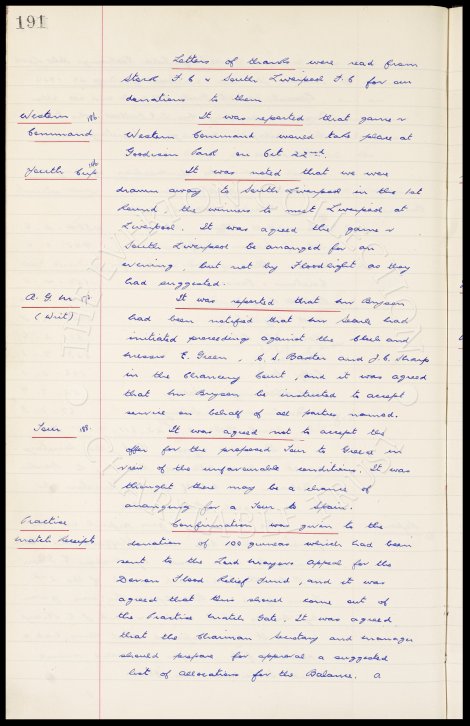 191
Letters of thanks were read from
Stork F.C & South Liverpool F.C for our
donations to them
Western 186
Command
It was reported that game v
Western Command would take place at
Goodison Park on Oct 22nd.
Youth Cup 186
It was noted that we were
drawn away to South Liverpool in the 1st
Round, the winners to meet Liverpool at
Liverpool. It was agreed the game v
South Liverpool be arranged for an
evening, but not by Floodlight as they
had suggested.
A. G. M
(Writ)
It was reported that Mr Bryson
had been notified that Mr Searle had
initiated proceedings against the Club and
Messrs E. Green, C S. Baxter and J. C. Sharp
in the Chancery Court, and it was agreed
that Mr Bryson be instructed to accept
service on behalf of all parties named.
Tour 188.
It was agreed not to accept the
offer for the proposed Tour to Greece in
view of the unfavourable conditions. It was
thought there may be a chance of
arranging for a Tour to Spain.
Practise
Match Receipts
Confirmation was given to the
donation of 100 guineas which had been
sent to the Lord Mayors Appeal for the
Devon Flood Relief Fund, and it was
agreed that this should come out of
the Practise Match Gate. It was agreed
that the Chairman Secretary and Manager
should prepare for approval a suggested
list of allocations for the Balance. A
THE EVERTON COLLECTION
CHARITABLE TRUST